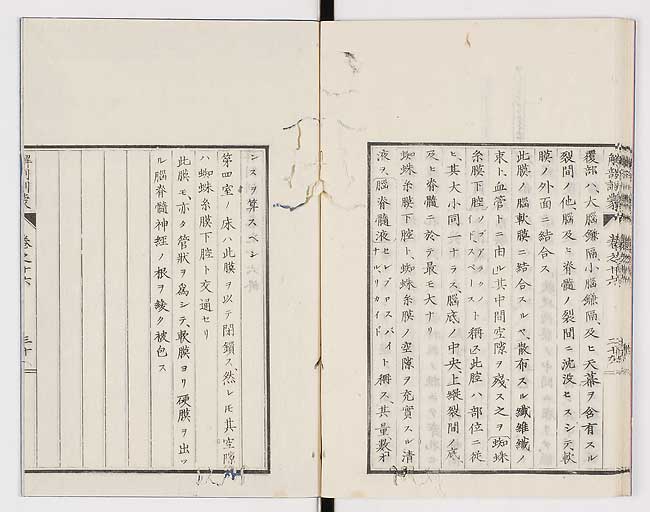 解剖訓蒙
卷之十六
二十九
覆部ハ、大腦鎌隔、小腦鎌隔、及ヒ天幕ヲ含有スル
裂間ノ他、腦及ヒ脊髓ノ裂間ニ沈沒セスシテ、軟
膜ノ外面ニ結合ス
此膜ノ腦軟膜ニ結合スルヤ、散布スル纖維纖ノ
束ト、血管トニ由ル、其中間空隙ヲ殘ス之ヲ蜘蛛
糸膜下腔ソブアラクノイドスペースト稱ス、此腔ハ部位ニ從
ヒ、其大小同一ナラス、腦底ノ中央上、縱裂間ノ底
及ヒ脊髓ニ於テ最モ大ナリ
蜘蛛糸膜下腔ト、蜘蛛糸膜ノ空隙ヲ充實スル清
液ヲ、腦脊髓液セレブロスパイナル、リカイドト稱ス、其量數オ
ンスヲ算ス
第四室ノ床ハ此膜ヲ以テ閉鎖ス、然レモ其空隙
ハ蜘蛛糸膜下腔ト交通セリ
此膜モ、亦タ管狀ヲ爲シテ、軟膜ヨリ硬膜ヲ出ツ
ル腦脊髓神經ノ根ヲ綾ク被包ス
解剖訓蒙
卷之十六
三十